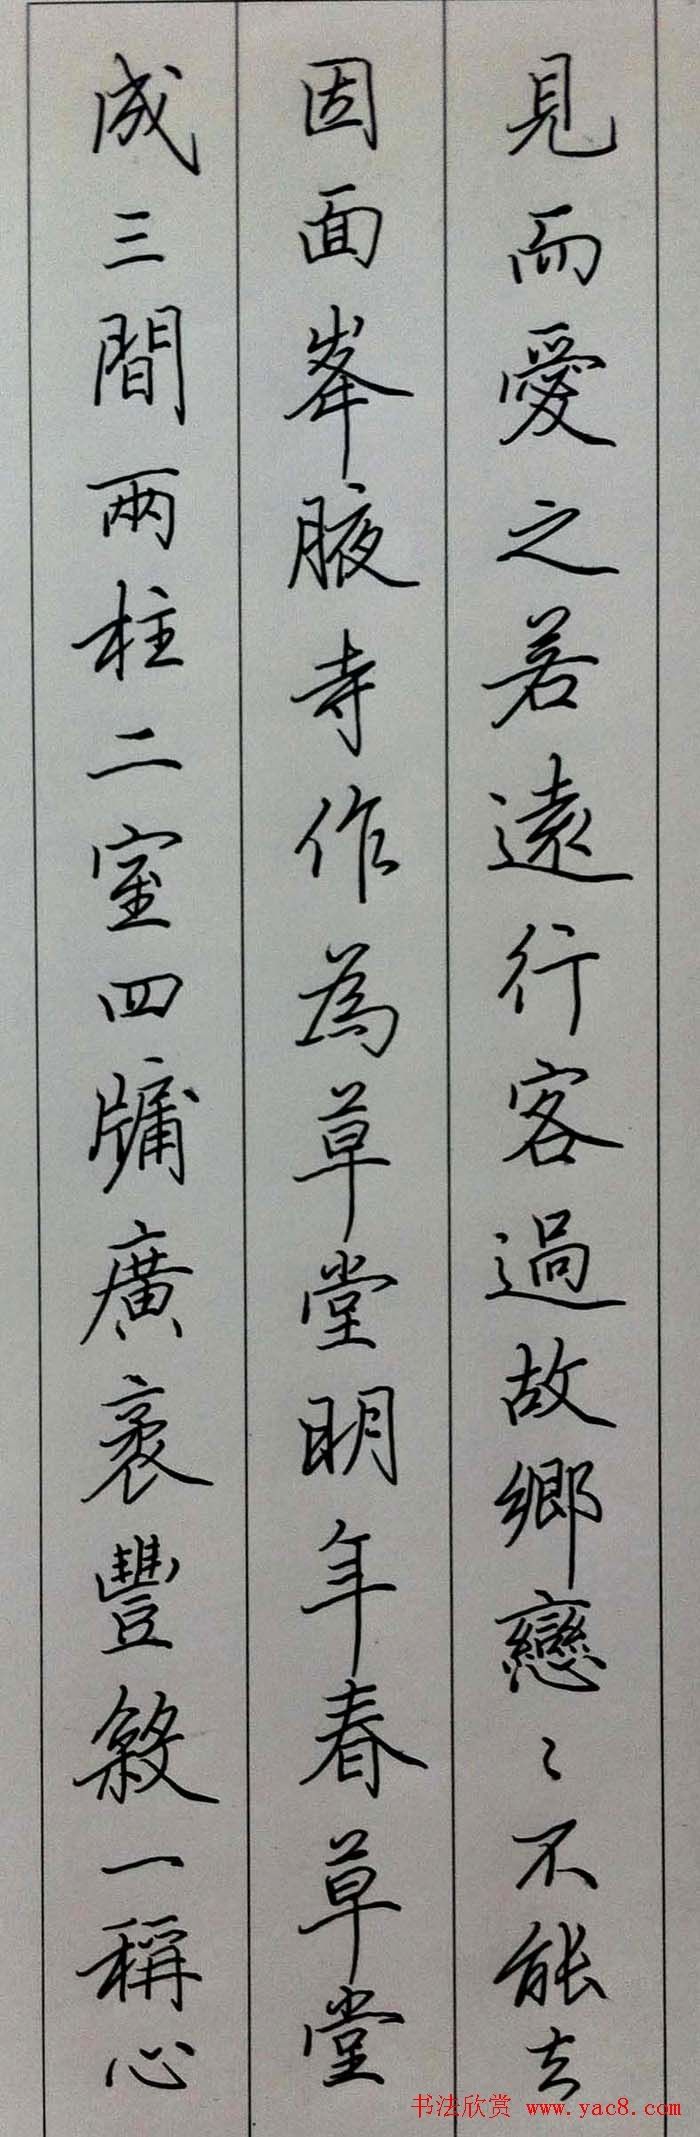 見而愛之若遠行客過故鄉戀〻不能去
因面峯腋寺作為草堂明年春草堂
成三間兩柱二室四牗廣袤豐殺一稱心
书法欣赏 www.yac8.com